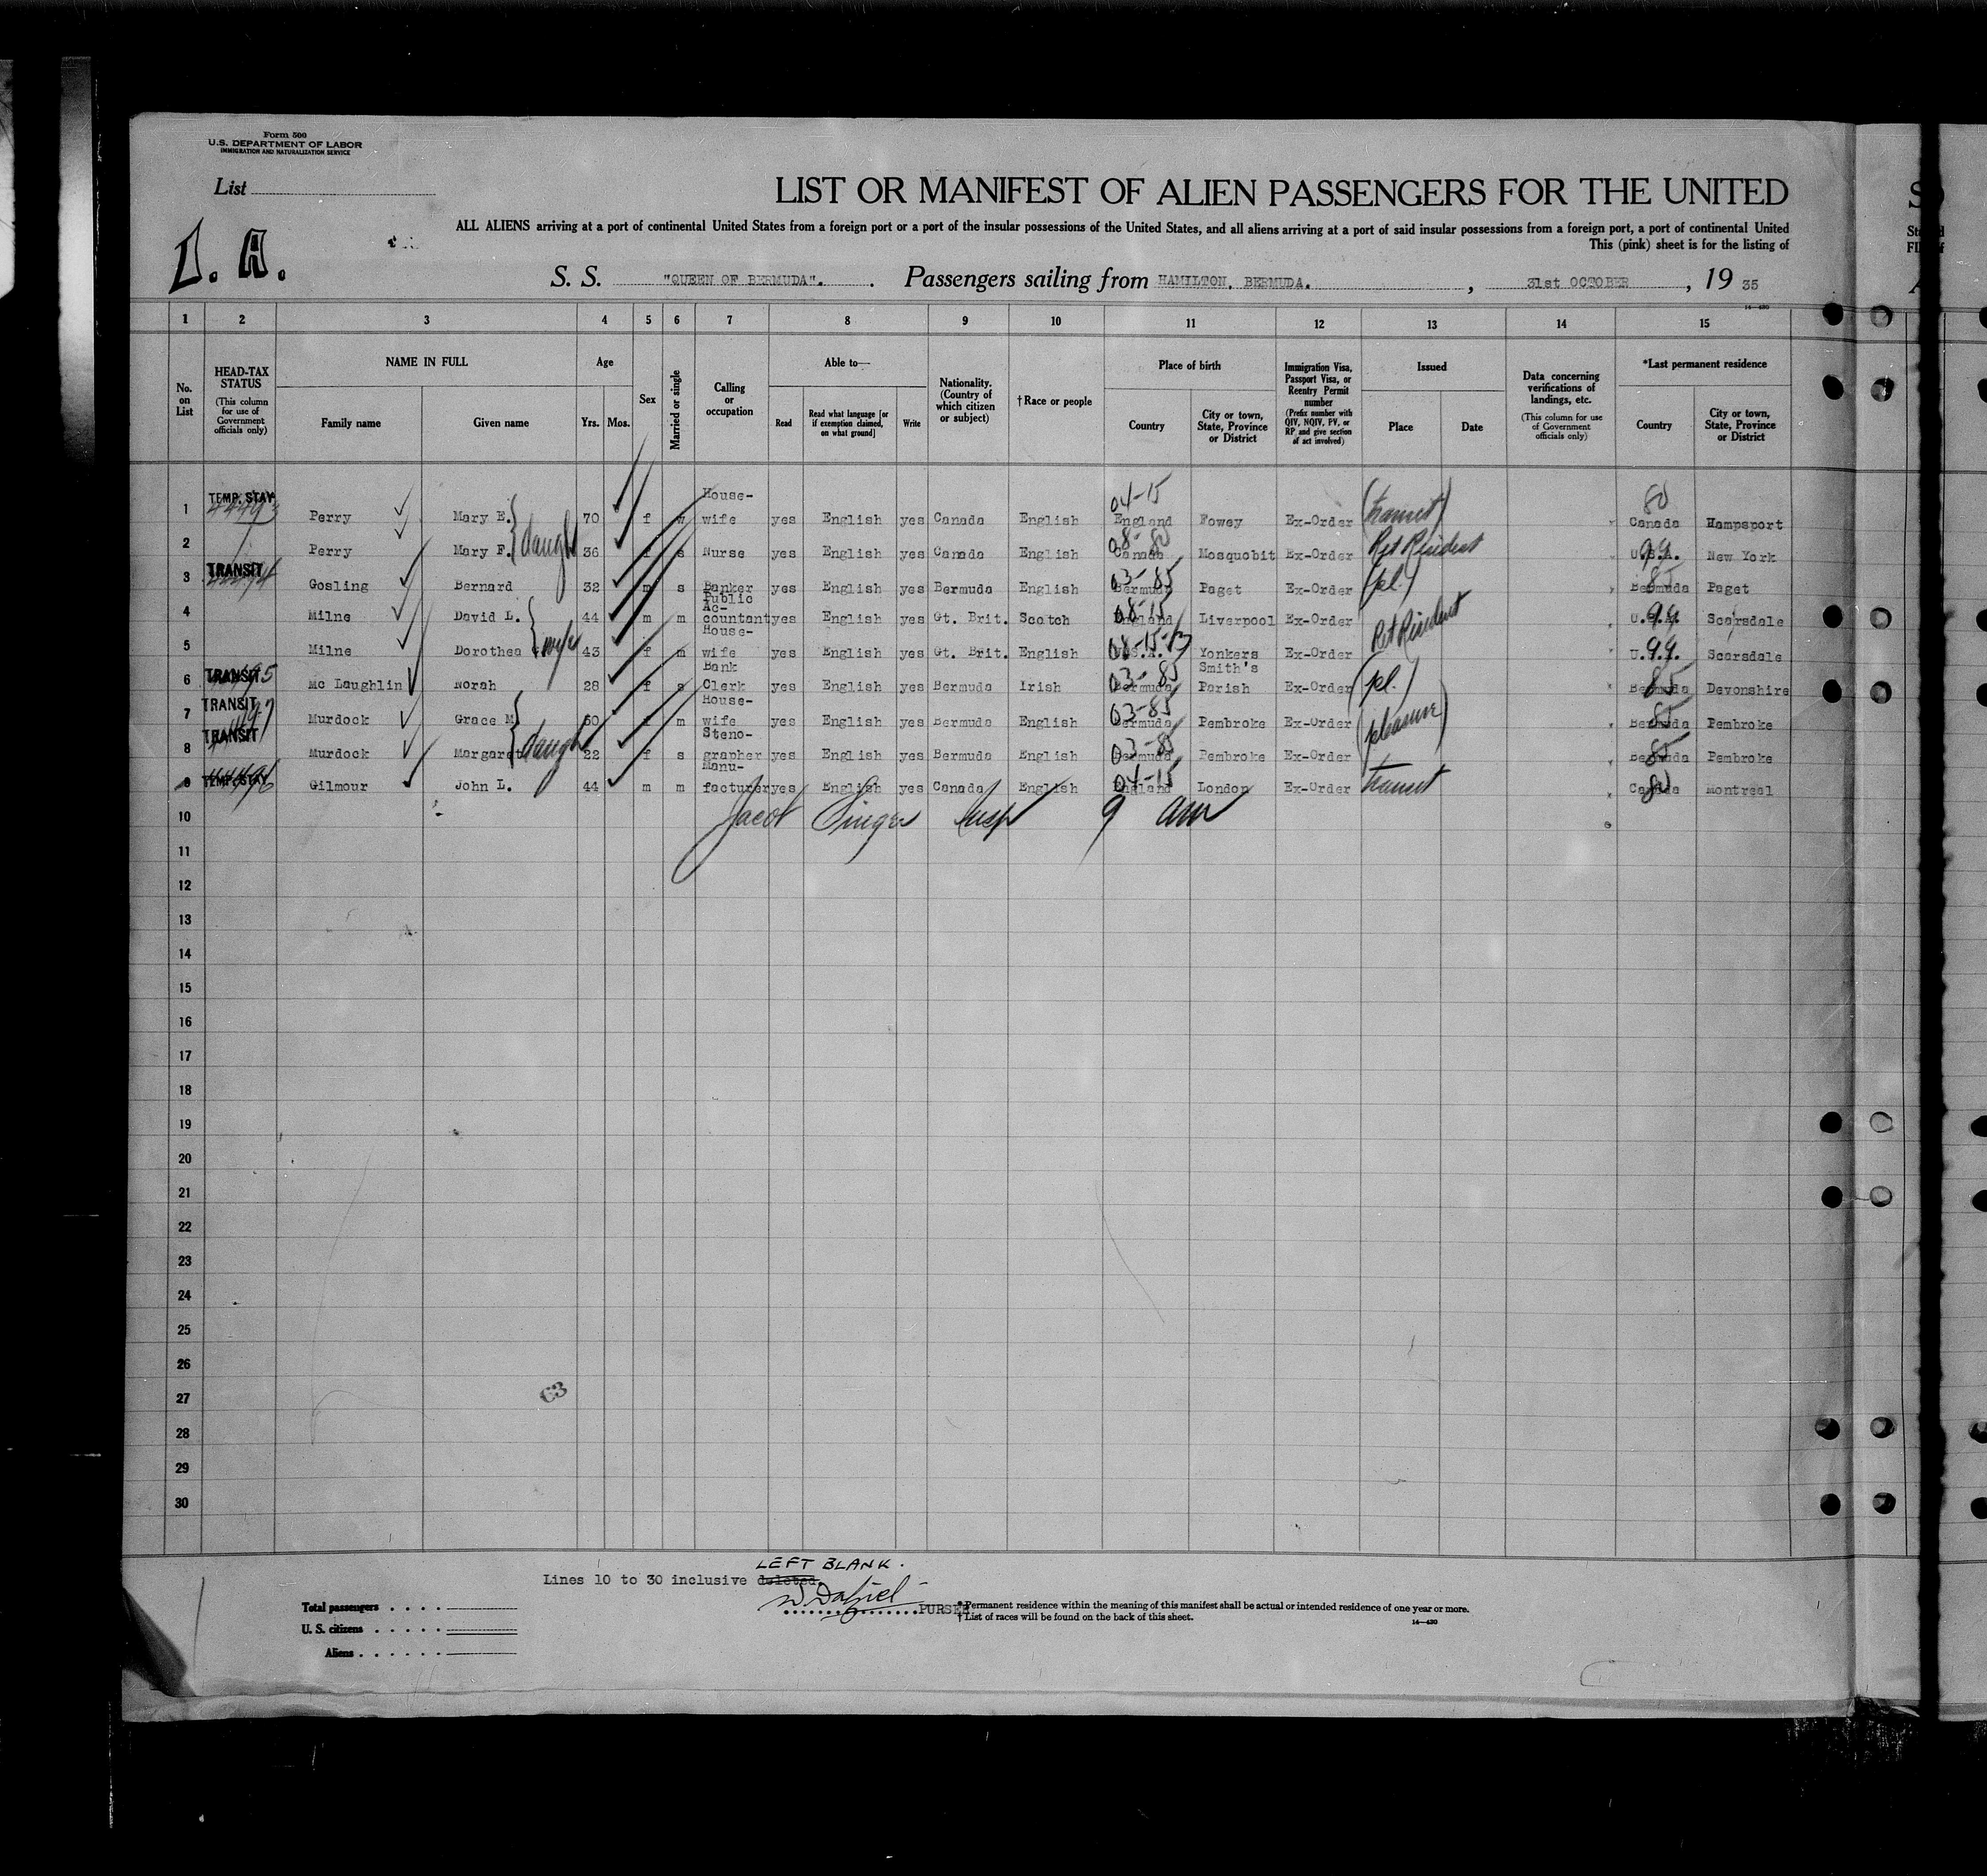 Form 500
U.S. DEPARTMENT OF LABOR
IMMIGRATION AND NATURALIZATION SERVICE
List
LIST OR MANIFEST OF ALIEN PASSENGERS FOR THE UNITED
ALL ALIENS arriving at a port of continental United States from a foreign port or a port of the insular possessions of the United States, and all aliens arriving at a port of said insular possessions from a foreign port, a port of continental United
This (pink) sheet is for the listing of
S. S. "QUEEN OF BERMUDA". Passengers sailing from HAMILTON, BERMUDA. , 31st OCTOBER , 19 35
1 2 3 4 5 6 7 8 9 10 11 12 13 14 15
No. on List
HEAD-TAX STATUS (This column for use of Government officials only)
NAME IN FULL Family name Given name
Age Yrs. Mos.
Sex
Married or single
Calling or occupation
Able to— Read Read what language [or if exemption claimed, on what ground] Write
Nationality. (Country of which citizen or subject)
†Race or people
Place of birth Country City or town, State, Province or District
Immigration Visa, Passport Visa, or Reentry Permit number (Prefix number with QIV, NQIV, PV, or RP and give section of act involved)
Issued Place Date
Data concerning verifications of landings, etc. (This column for use of Government officials only)
*Last permanent residence Country City or town, State, Province or District
1 TEMP. STAY Perry Mary E. 70 f w House-wife yes English yes Canada English 04-15 England Fowey Ex-Order (transit) 80 Canada Hampsport
2 Perry Mary F. daught 36 f s Nurse yes English yes Canada English 08-80 Canada Mosquobit Ex-Order Ret Resident 99 U.S.A. New York
3 TRANSIT Gosling Bernard 32 m s Banker yes English yes Bermuda English 03-85 Bermuda Paget Ex-Order (pl.) 85 Bermuda Paget
4 Milne David L. 44 m m Public Ac-countant yes English yes Gt. Brit. Scotch 08-15 England Liverpool Ex-Order 99 Scarsdale
5 Milne Dorothea wife 43 f m House-wife yes English yes Gt. Brit. English U.S.A. Yonkers Ex-Order Ret Resident 99 Scarsdale
6 TRANSIT Mc Laughlin Norah 28 f s Bank Clerk yes English yes Bermuda Irish 03-85 Bermuda Smith's Parish Ex-Order (pl.) 85 Bermuda Devonshire
7 TRANSIT Murdock Grace M 50 f m House-wife yes English yes Bermuda English 03-85 Bermuda Pembroke Ex-Order (pleasure) 85 Bermuda Pembroke
8 TRANSIT Murdock Margaret daught 22 f s Steno-grapher yes English yes Bermuda English 03-85 Bermuda Pembroke Ex-Order 85 Bermuda Pembroke
9 TEMP. STAY Gilmour John L. 44 m m Manu-facturer yes English yes Canada English 04-15 England London Ex-Order transit 80 Canada Montreal
10 Jacob Singer Insp 9 am
11
12
13
14
15
16
17
18
19
20
21
22
23
24
25
26
27
28
29
30
63
LEFT BLANK.
Lines 10 to 30 inclusive deleted
PURSER
Total passengers
U. S. citizens
Aliens
*Permanent residence within the meaning of this manifest shall be actual or intended residence of one year or more.
†List of races will be found on the back of this sheet.
14—430